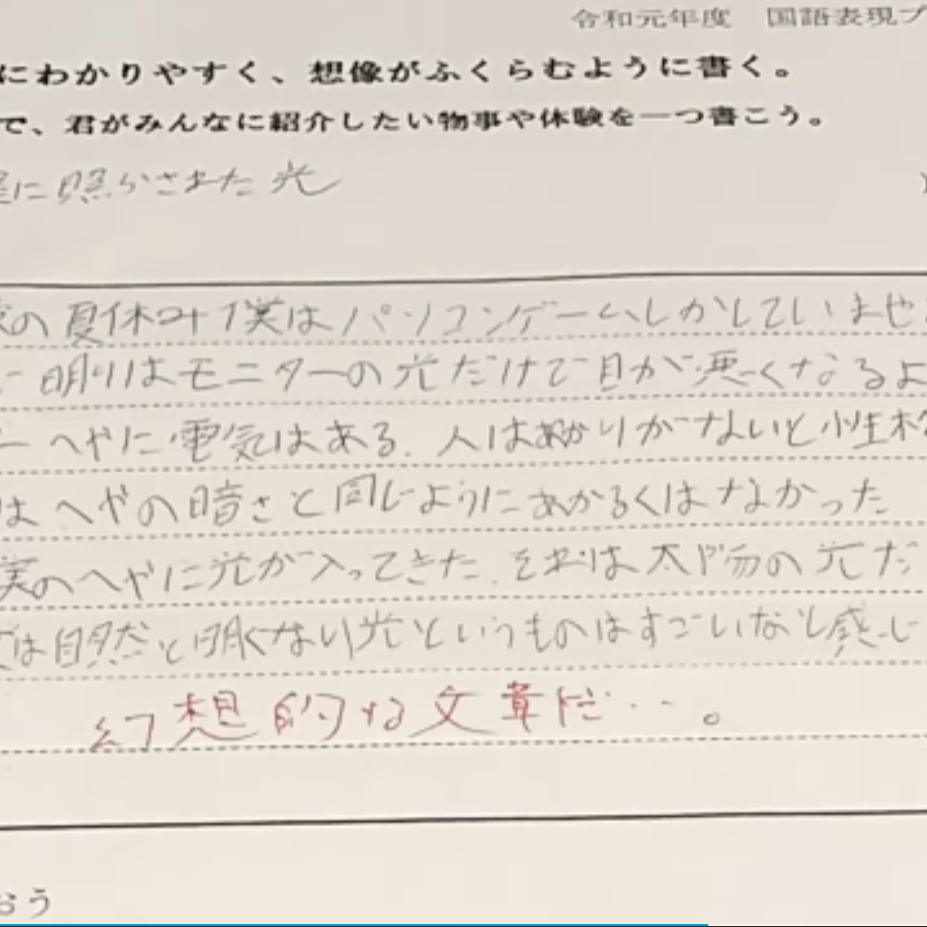 令和元年度 国語表現プ
にわかりやすく、想像がふくらむように書く。
で、君がみんなに紹介したい物事や体験を一つ書こう。
に照らされた光
の夏休み僕はパソコンゲームしかしていませ
明りはモニターの光だけで目が悪くなるよ
へやに電気はある. 人は明かりがないと性格
はへやの暗さと同じようにあかるくはなかった
のへやに光が入ってきた. それは太陽の光だ
は自然と眩くない光というものはすごいなと感じ
幻想的な文章だ…。
おう